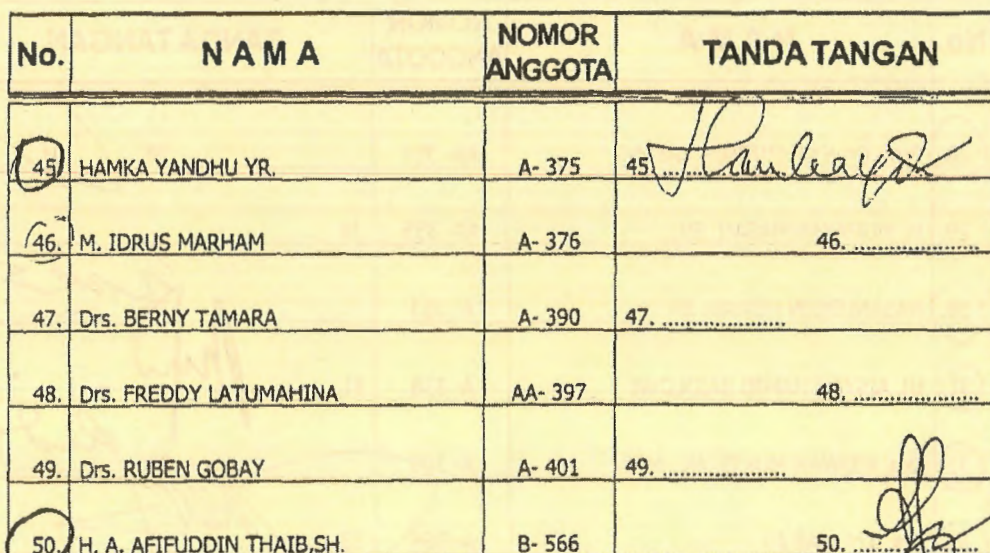 No. N A M A NOMOR ANGGOTA TANDA TANGAN
45. HAMKA YANDHU YR. A- 375 45. .........
46. M. IDRUS MARHAM A- 376 46. ..................
47. Drs. BERNY TAMARA A- 390 47. ..................
48. Drs. FREDDY LATUMAHINA AA- 397 48. ..................
49. Drs. RUBEN GOBAY A- 401 49. ..................
50. H. A. AFIFUDDIN THAIB,SH. B- 566 50. ..................